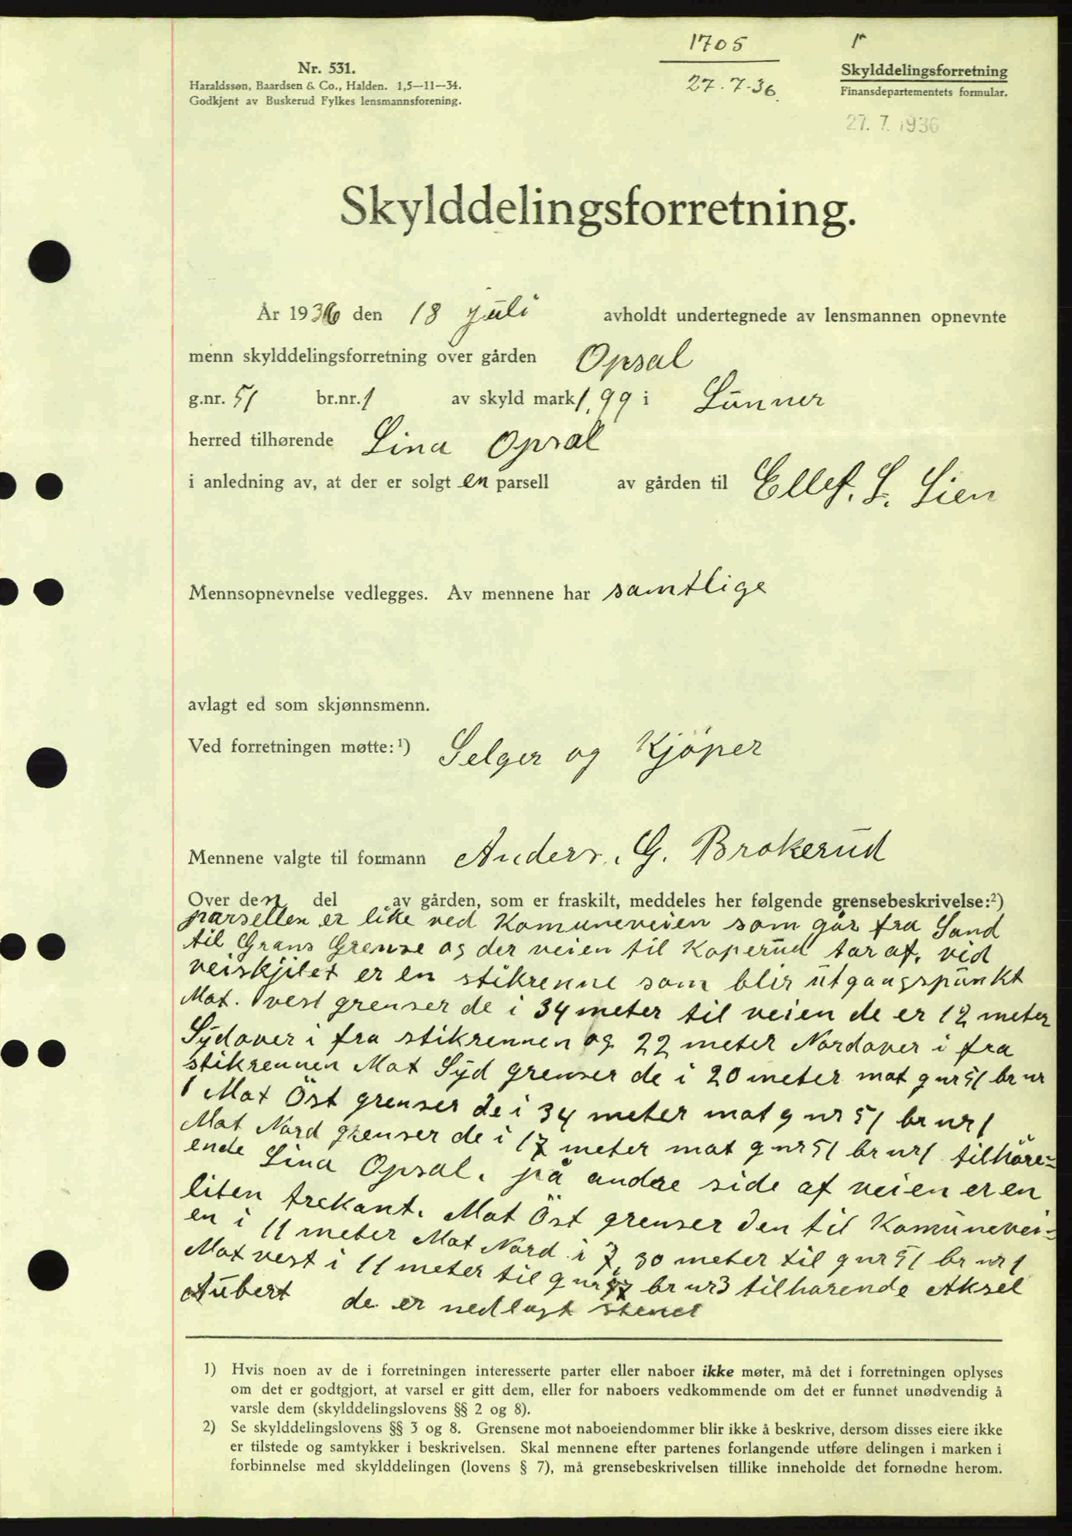 1705
27.7.36.
Nr. 531.
Haraldssøn, Baardsen & Co., Halden. 1,5—11—34.
Godkjent av Buskerud Fylkes lensmannsforening.
Skylddelingsforretning
Finansdepartementets formular.
27. 7. 1936
Skylddelingsforretning.
År 1936 den 18 juli avholdt undertegnede av lensmannen opnevnte
menn skylddelingsforretning over gården Opsal
g.nr. 51 br.nr. 1 av skyld mark 1,99 i Lunner
herred tilhørende Lina Opsal
i anledning av, at der er solgt en parsell av gården til Ellef. L. Lien
Mennsopnevnelse vedlegges. Av mennene har samtlige
avlagt ed som skjønnsmenn.
Ved forretningen møtte:¹) Selger og Kjöper
Mennene valgte til formann Anders. G. Brokerud
Over den del av gården, som er fraskilt, meddeles her følgende grensebeskrivelse:²)
parsellen er like ved Komuneveien som går fra Sand
til Grans Grense og der veien til Koperud tar af. vid
veiskjilet er en stikrenne som blir utgangspunkt
Mot. vest grenser de i 34 meter til veien de er 12 meter
Sydover i fra stikrennen og 22 meter Nordover i fra
stikrennen Mot Syd grenser de i 20 meter mot g nr 51 br nr
1 Mot Öst grenser de i 34 meter mot g nr 51 br nr 1
Mot Nord grenser de i 17 meter mot g nr 51 br nr 1 tilhöre-
ende Lina Opsal. på andre side af veien er en
liten trekant. Mot Öst grenser den til Komunevei-
en i 11 meter Mot Nord i 7,30 meter til g nr 51 br nr 1
Mot vest i 11 meter til g nr br nr 3 tilhørende Aksel
Aubert de er nedlagt stener
1) Hvis noen av de i forretningen interesserte parter eller naboer ikke møter, må det i forretningen oplyses
om det er godtgjort, at varsel er gitt dem, eller for naboers vedkommende om det er funnet unødvendig å
varsle dem (skylddelingslovens §§ 2 og 8).
2) Se skylddelingslovens §§ 3 og 8. Grensene mot naboeiendommer blir ikke å beskrive, dersom disses eiere ikke
er tilstede og samtykker i beskrivelsen. Skal mennene efter partenes forlangende utføre delingen i marken i
forbinnelse med skylddelingen (lovens § 7), må grensebeskrivelsen tillike inneholde det fornødne herom.